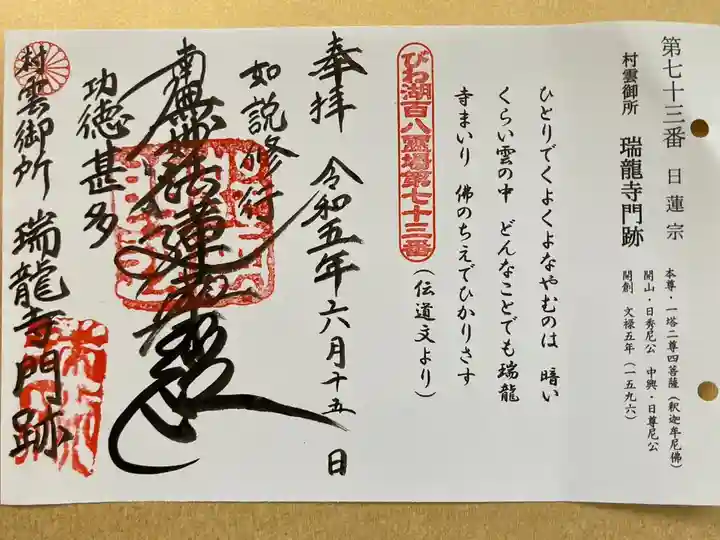 第七十三番 日蓮宗
村雲御所 瑞龍寺門跡
本尊・一塔二尊四菩薩（釈迦牟尼佛）
開山・日秀尼公 中興・日尊尼公
開創 文禄五年（一五九六）
ひとりでくよくよなやむのは 暗い
くらい雲の中 どんなことでも瑞龍
寺まいり 佛のちえでひかりさす
（伝道文より）
びわ湖百八霊場第七十三番
奉拝 令和五年六月十五日
如説修行
南無妙法蓮華経
功徳甚多
村雲御所 瑞龍寺門跡